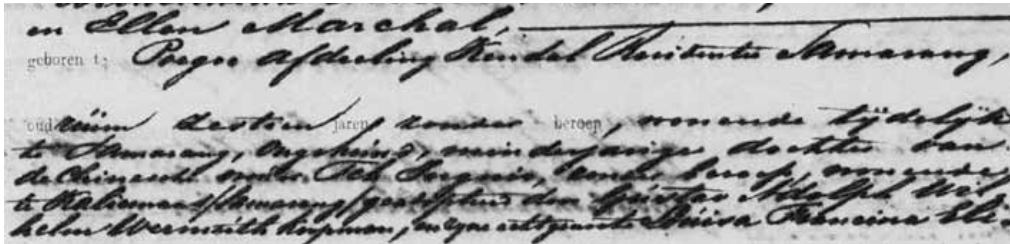 en Ellen Marchal,
geboren te Poegoe Afdeeling Kendal Residentie Samarang,
oud ruim zestien jaren, zonder beroep, wonende tijdelijk
te Samarang, ongehuwd, minderjarige dochter van
de Chineesche vrouw Tch, zonder beroep, wonende
te Kaliemaas/Samarang/geadopteerd door Gustav Adolph Wil-
helm Wermuth koopman, en zijne echtgenoote Louisa Francina Eli-